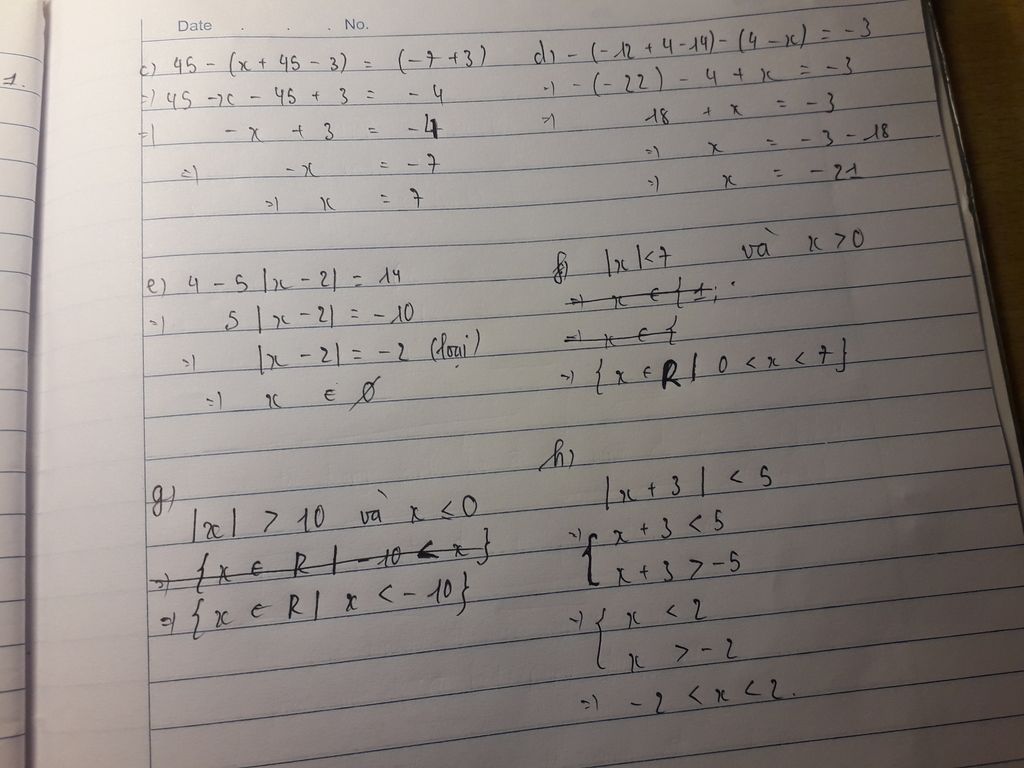 Date . . . No.
1.
c) 45 - (x + 45 - 3) = (-7 + 3)
=) 45 - x - 45 + 3 = -4
=) -x + 3 = -4
=) -x = -7
=) x = 7
d) - (-12 + 4 - 14) - (4 - x) = -3
=) - (-22) - 4 + x = -3
=) 18 + x = -3
=) x = -3 - 18
=) x = -21
e) 4 - 5 |x - 2| = 14
=) 5 |x - 2| = -10
=) |x - 2| = -2 (loại)
=) x ∈ ∅
f) |x| < 7 và x > 0
=) x ∈ { 1;
=) x ∈ {
=) {x ∈ R | 0 < x < 7}
g)
|x| > 10 và x < 0
=) {x ∈ R | -10 < x}
=) {x ∈ R | x < -10}
h)
|x + 3| < 5
=) { x + 3 < 5
x + 3 > -5
=) { x < 2
x > -2
=) -2 < x < 2.